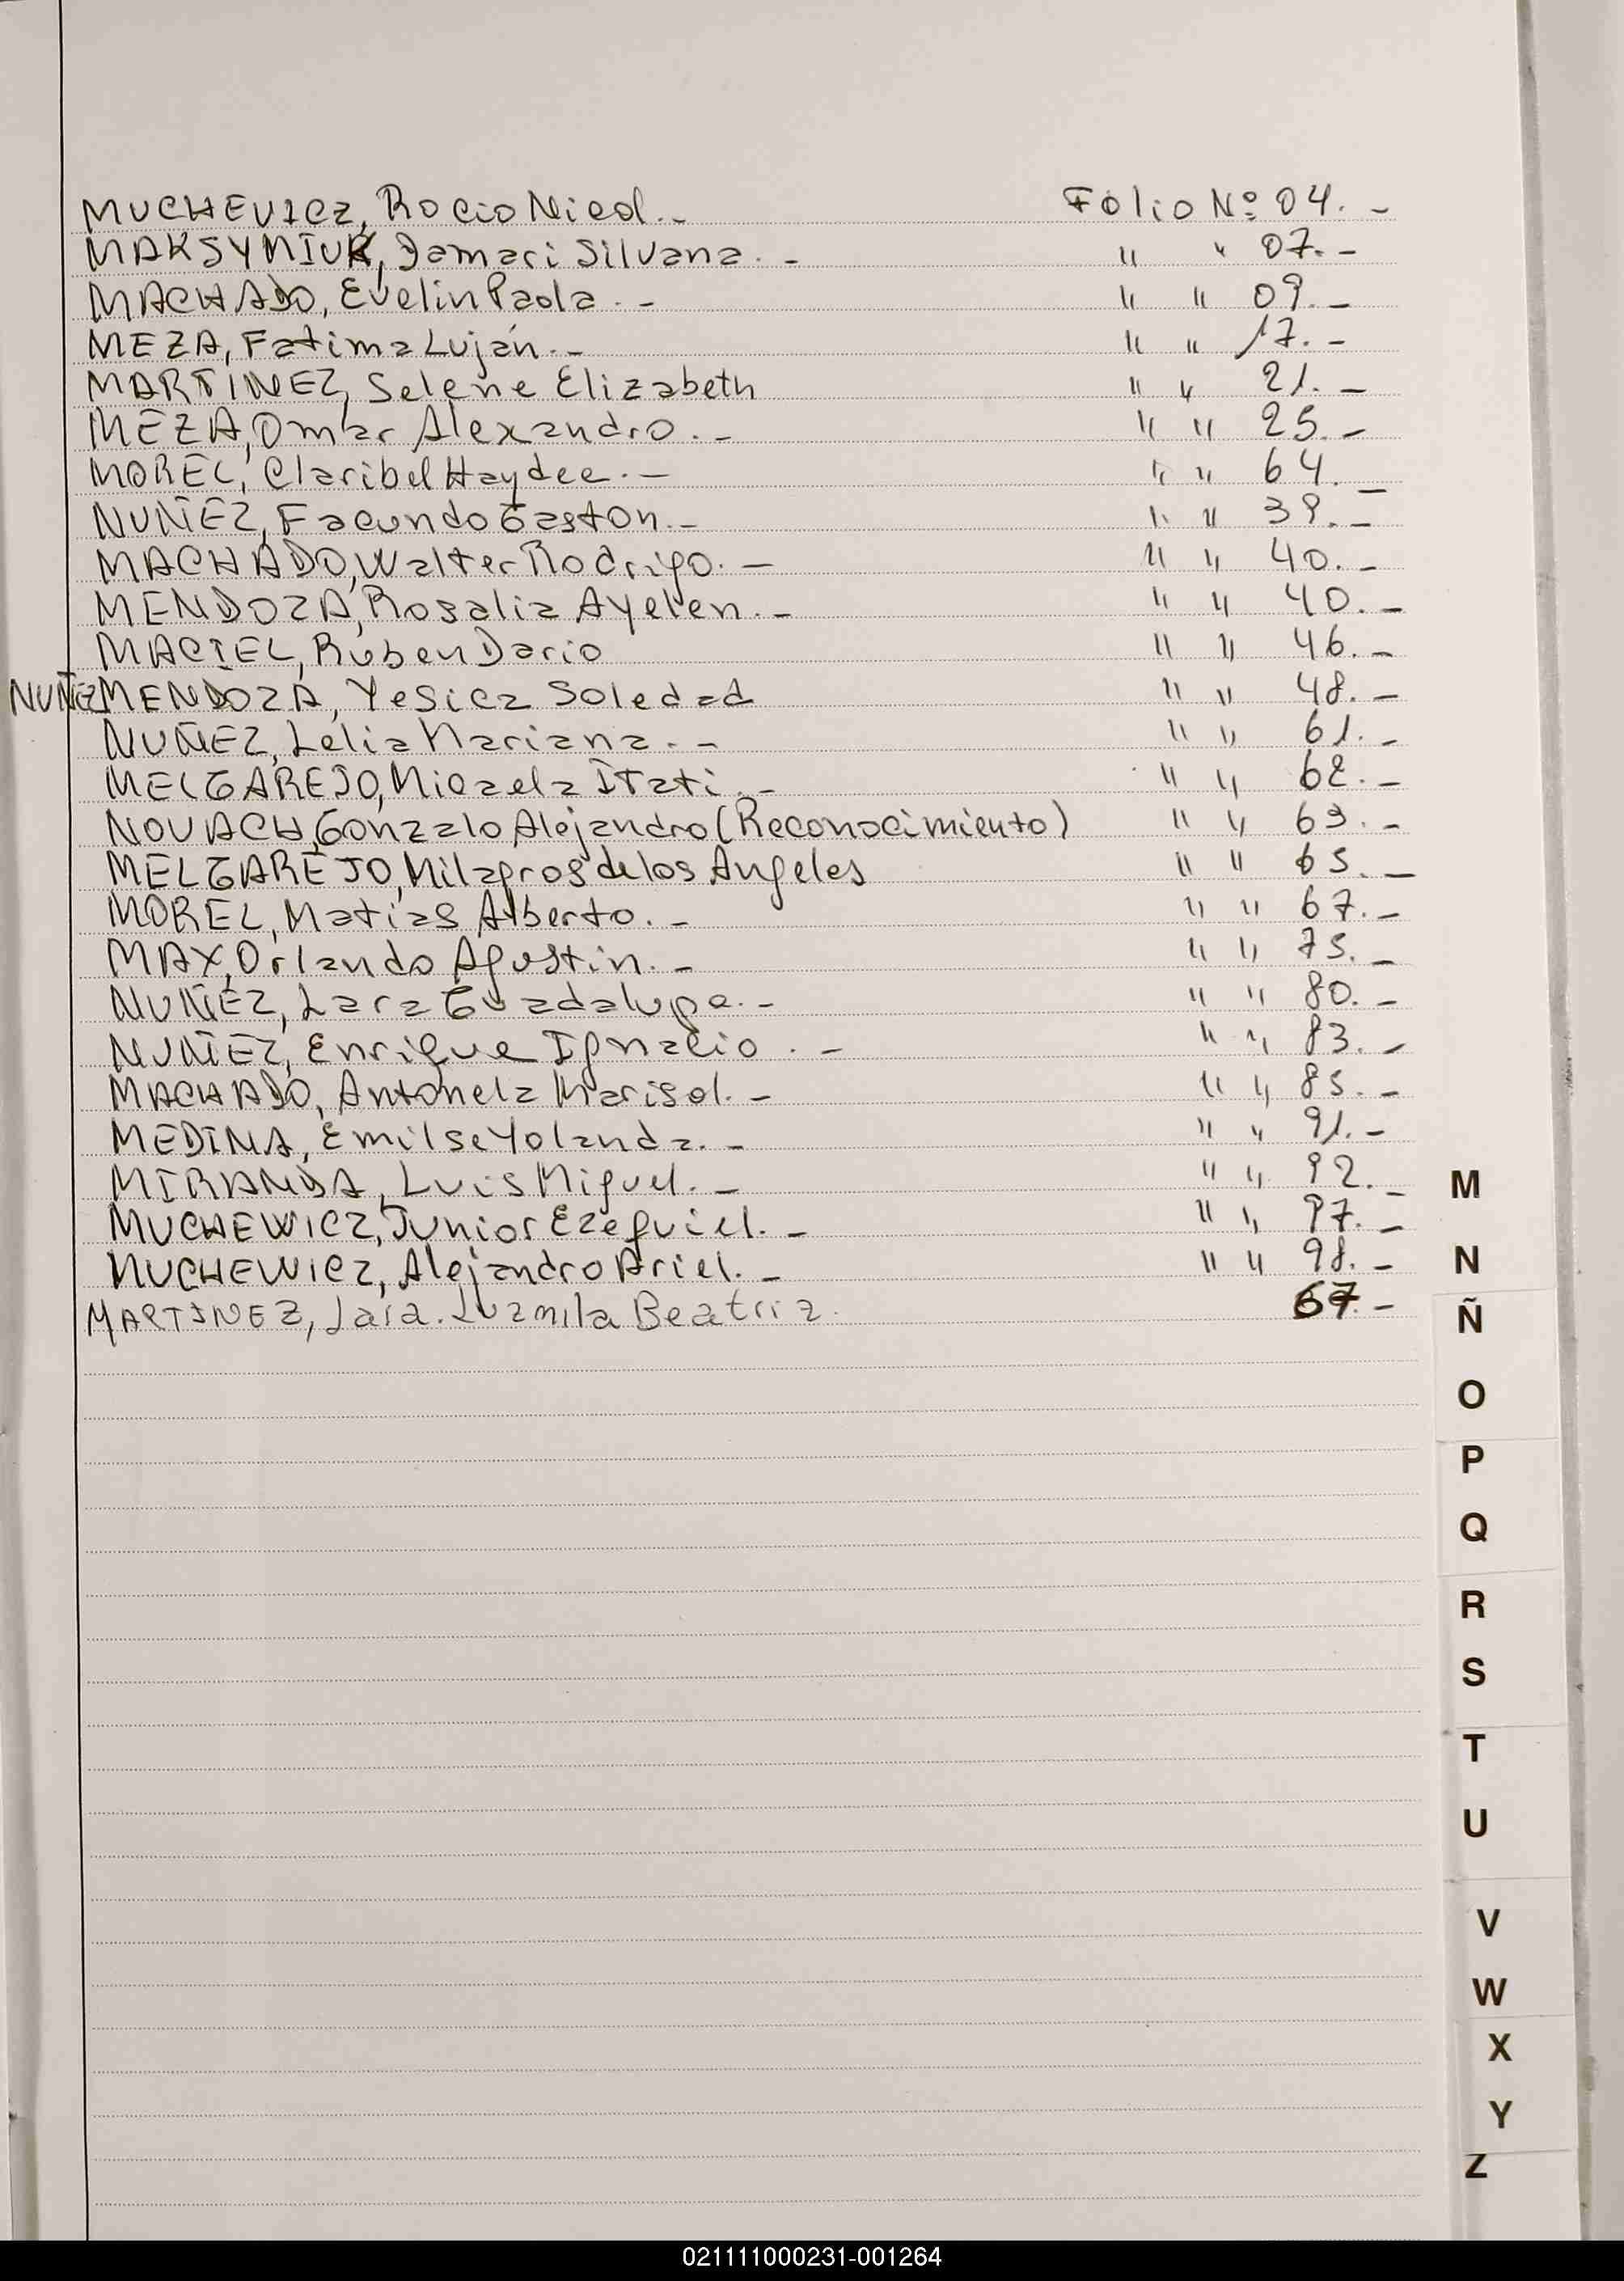 MUCHEVICZ, Rocio Nicol.- Folio Nº 04.-
MAKSYMIUK, Damari Silvana.- " " 07.-
MACHADO, Evelin Paola.- " " 09.-
MEZA, Fatima Luján.- " " 17.-
MARTINEZ, Selene Elizabeth " " 21.-
MEZA, Omar Alexandro.- " " 25.-
MOREL, Claribel Haydee.- " " 64.-
NUÑEZ, Facundo Gaston.- " " 39.-
MACHADO, Walter Rodrigo.- " " 40.-
MENDOZA, Rosalia Ayelen.- " " 40.-
MACIEL, Ruben Dario " " 46.-
NUÑEZ MENDOZA, Yesica Soledad " " 48.-
NUÑEZ, Lelia Mariana.- " " 61.-
MELGAREJO, Micaela Itati.- " " 62.-
NOVACH, Gonzalo Alejandro (Reconocimiento) " " 63.-
MELGAREJO, Milagros de los Angeles " " 65.-
MOREL, Matias Alberto.- " " 67.-
MAX, Orlando Agustin.- " " 75.-
NUÑEZ, Lara Guadalupe.- " " 80.-
NUÑEZ, Enrique Ignacio.- " " 83.-
MACHADO, Antonela Marisol.- " " 85.-
MEDINA, Emilse Yolanda.- " " 91.-
MIRANDA, Luis Miguel.- " " 92.-
MUCHEWICZ, Junior Ezequiel.- " " 97.-
MUCHEWICZ, Alejandro Ariel.- " " 98.-
MARTINEZ, Lara Luzmila Beatriz. 67.-
M
N
Ñ
O
P
Q
R
S
T
U
V
W
X
Y
Z
021111000231-001264